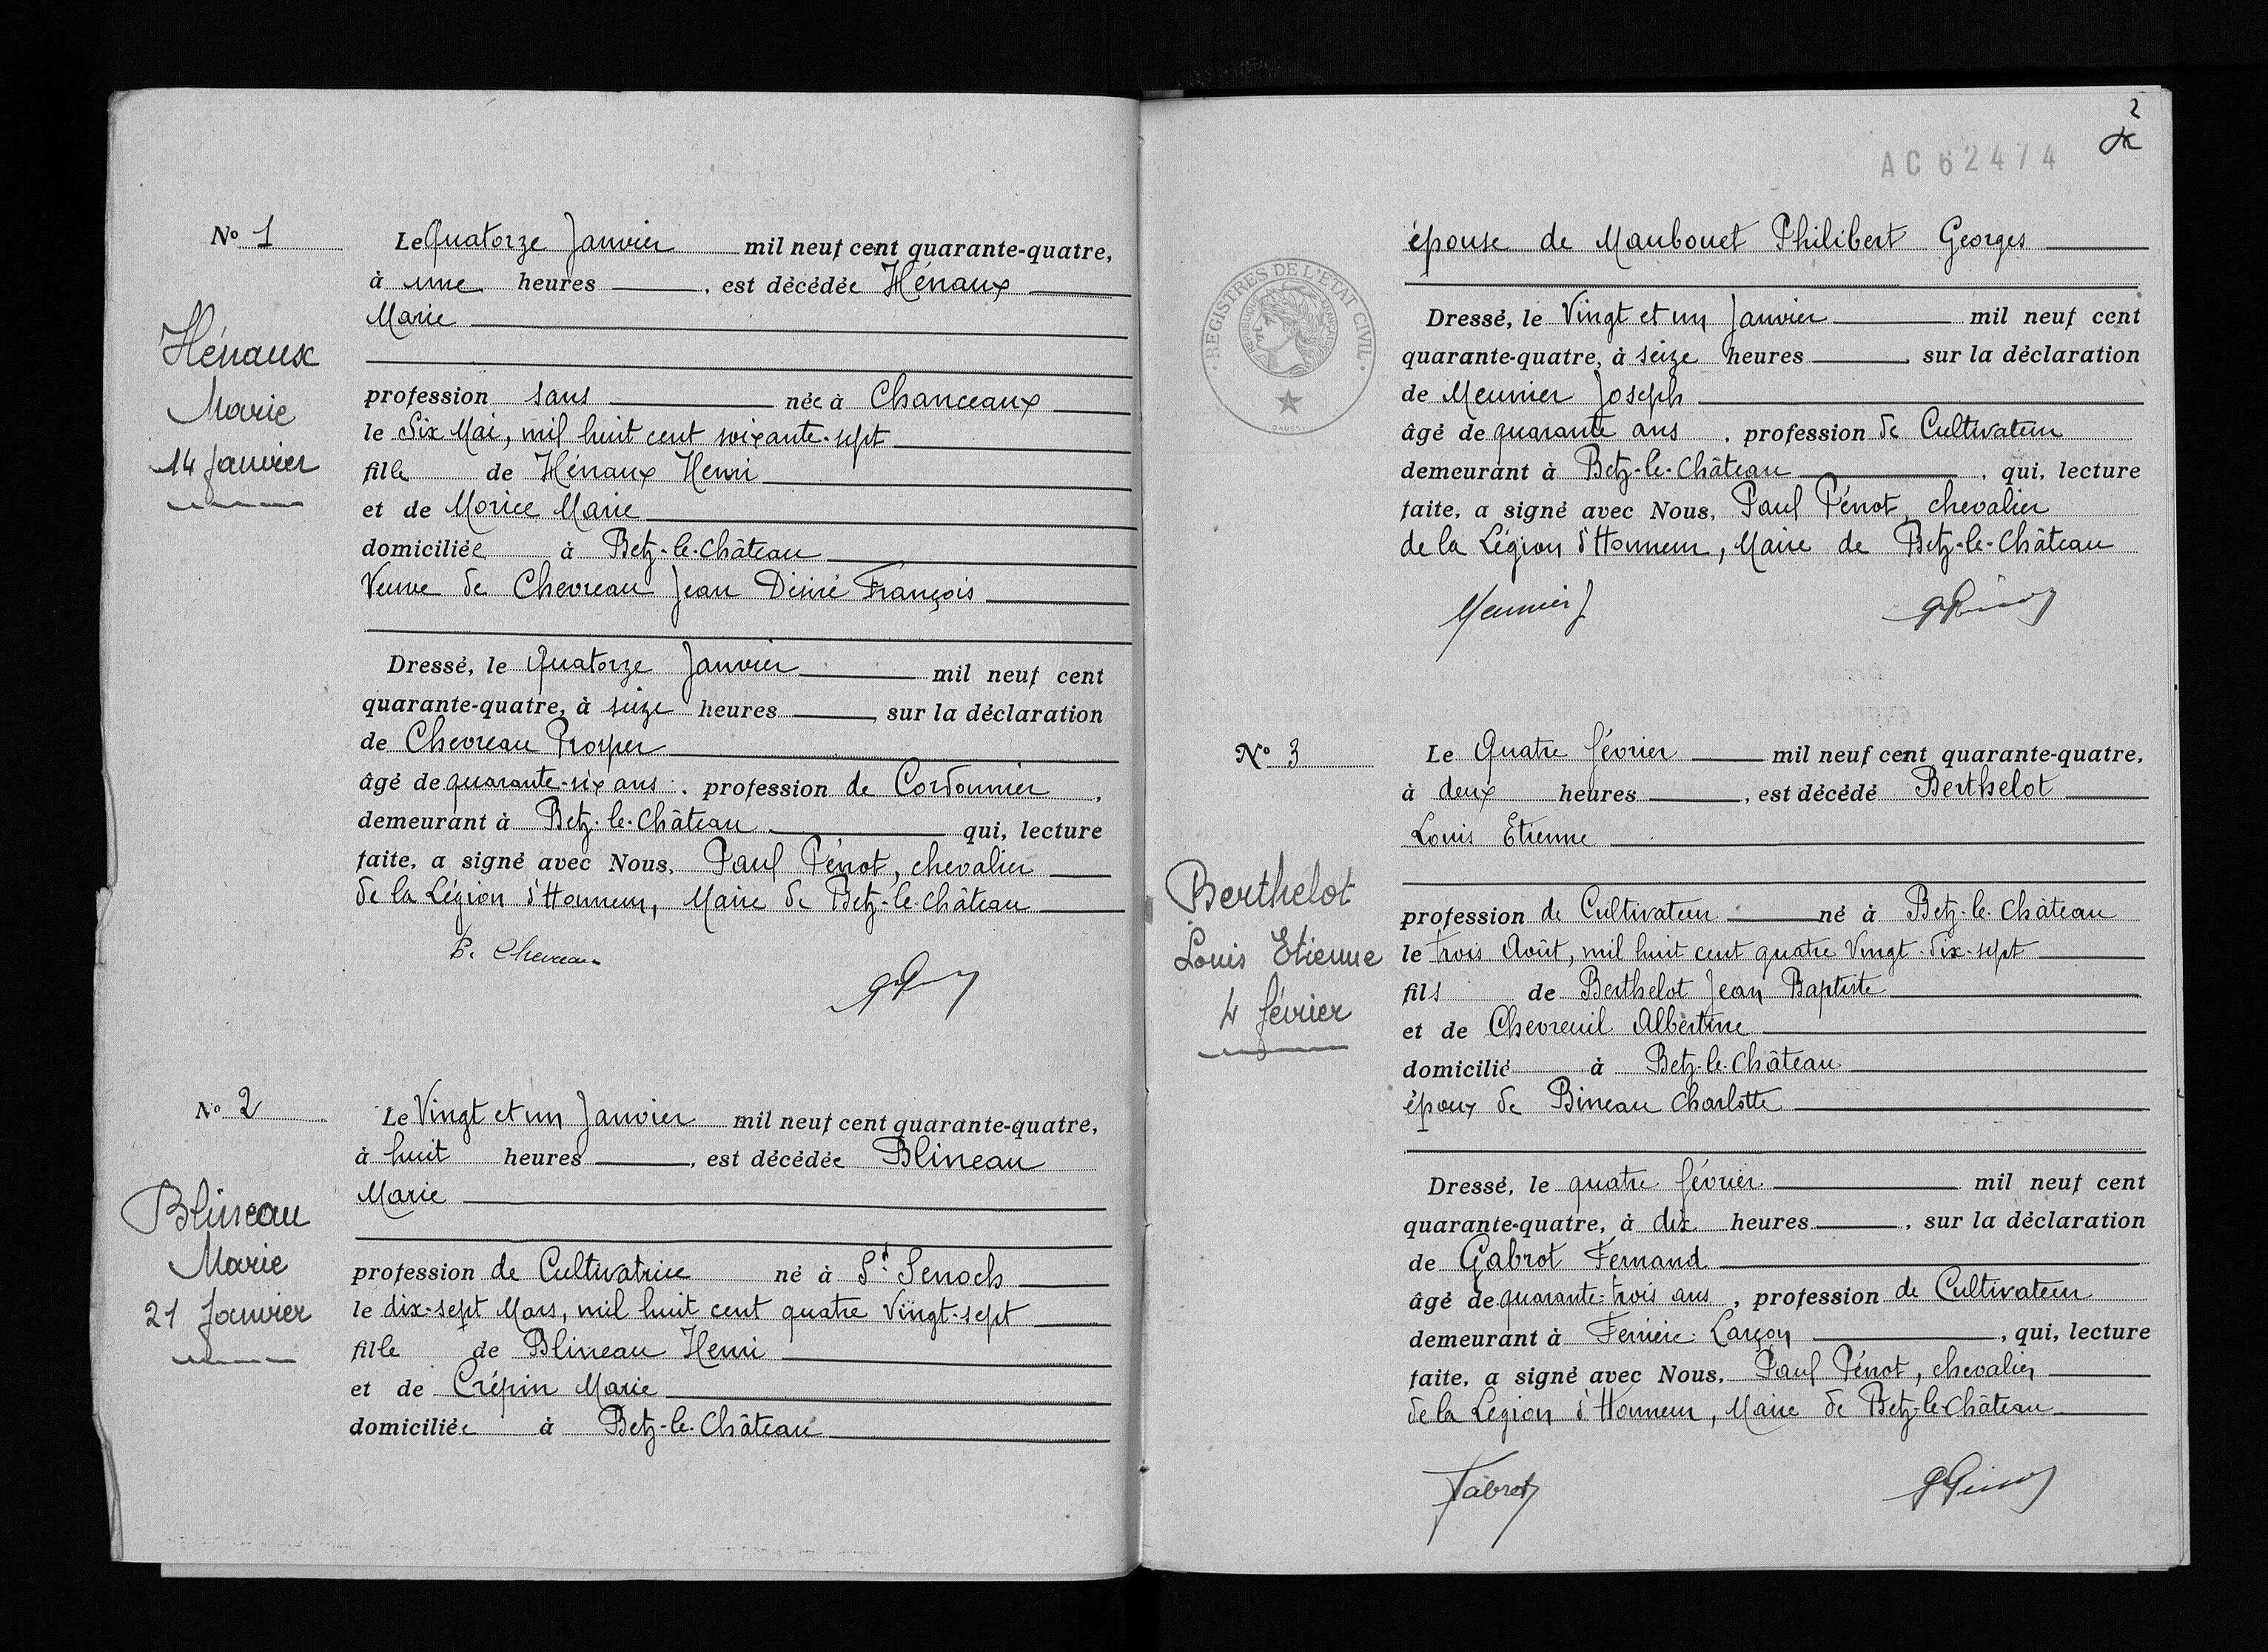 Nº 1
Hénaux
Marie
14 Janvier
Le Quatorze Janvier mil neuf cent quarante-quatre,
à une heures, est décédée Hénaux
Marie
profession sans née à Chanceaux
le dix Mai, mil huit cent soixante-sept
fille de Hénaux Henri
et de Morice Marie
domiciliée à Betz-le-Château
Veuve de Chevreau Jean Désiré François
Dressé, le Quatorze Janvier mil neuf cent
quarante-quatre, à seize heures, sur la déclaration
de Chevreau Prosper
âgé de quarante-six ans, profession de Cordonnier,
demeurant à Betz-le-Château qui, lecture
faite, a signé avec Nous, Paul Pénot, chevalier
de la Légion d'Honneur, Maire de Betz-le-Château
P. Chevreau
Nº 2
Blineau
Marie
21 Janvier
Le Vingt et un Janvier mil neuf cent quarante-quatre,
à huit heures, est décédée Blineau
Marie
profession de Cultivatrice né à St Senoch
le dix-sept Mars, mil huit cent quatre Vingt-sept
fille de Blineau Henri
et de Crépin Marie
domiciliée à Betz-le-Château
2
AC 62474
épouse de Maubouet Philibert Georges
REGISTRES DE L'ÉTAT CIVIL
RÉPUBLIQUE FRANÇAISE
Dressé, le Vingt et un Janvier mil neuf cent
quarante-quatre, à seize heures sur la déclaration
de Meunier Joseph
âgé de quarante ans, profession de Cultivateur
demeurant à Betz-le-Château, qui, lecture
faite, a signé avec Nous, Paul Pénot, chevalier
de la Légion d'Honneur, Maire de Betz-le-Château
Meunier J
Nº 3
Berthelot
Louis Etienne
4 février
Le Quatre février mil neuf cent quarante-quatre,
à deux heures, est décédé Berthelot
Louis Etienne
profession de Cultivateur né à Betz-le-Château
le trois Août, mil huit cent quatre Vingt-dix-sept
fils de Berthelot Jean Baptiste
et de Chevreuil Albertine
domicilié à Betz-le-Château
époux de Bineau Charlotte
Dressé, le quatre février mil neuf cent
quarante-quatre, à dix heures, sur la déclaration
de Gabrot Fernand
âgé de quarante-trois ans, profession de Cultivateur
demeurant à Ferrière-Larçon, qui, lecture
faite, a signé avec Nous, Paul Pénot, chevalier
de la Légion d'Honneur, Maire de Betz-le-Château